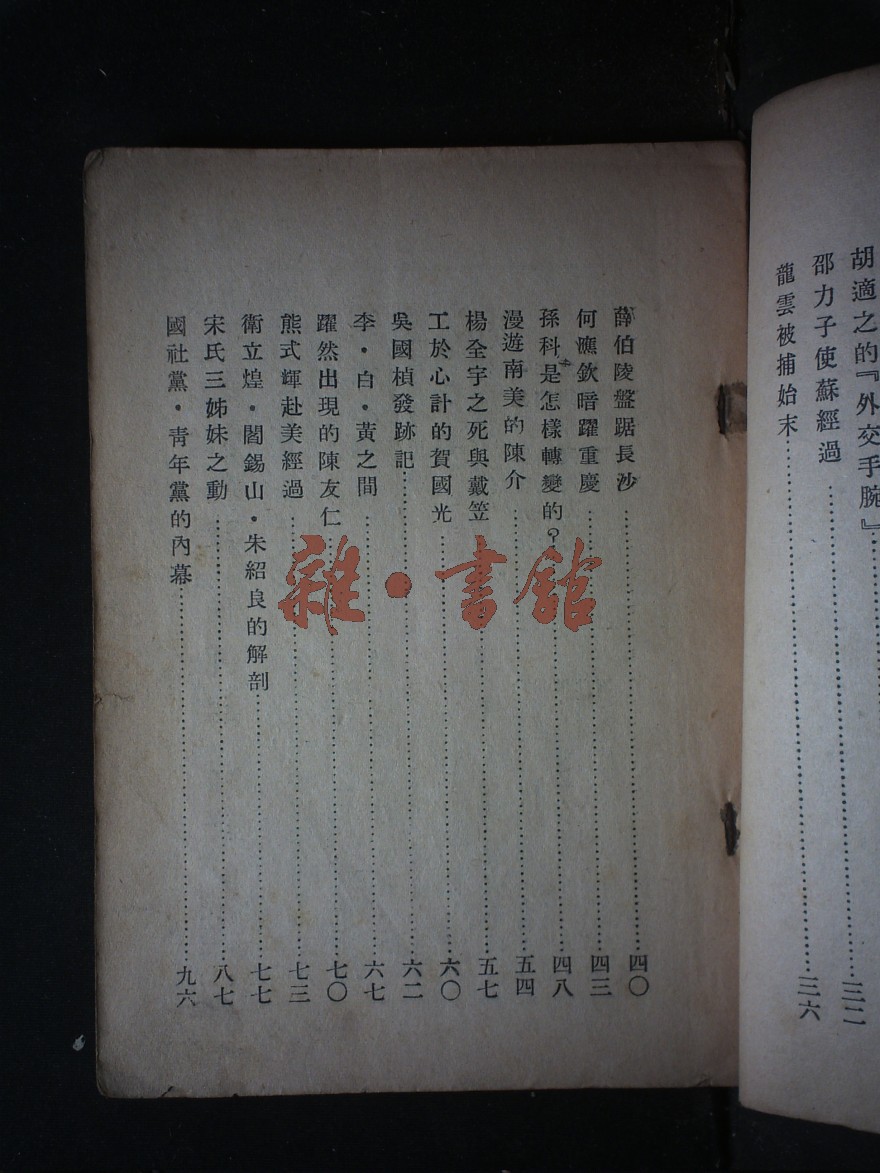 胡適之的『外交手腕』
邵力子使蘇經過……三二
龍雲被捕始末……三六
薛伯陵盤踞長沙……四〇
何應欽暗躍重慶……四三
孫科是怎樣轉變的?……四八
漫遊南美的陳介……五四
楊全宇之死與戴笠……五七
工於心計的賀國光……六〇
吳國楨發跡記……六二
李·白·黃之間……六七
躍然出現的陳友仁……七〇
熊式輝赴美經過……七三
衛立煌·閻錫山·朱紹良的解剖……七七
宋氏三姊妹之動……八七
國社黨·青年黨的內幕……九六
雜·書館